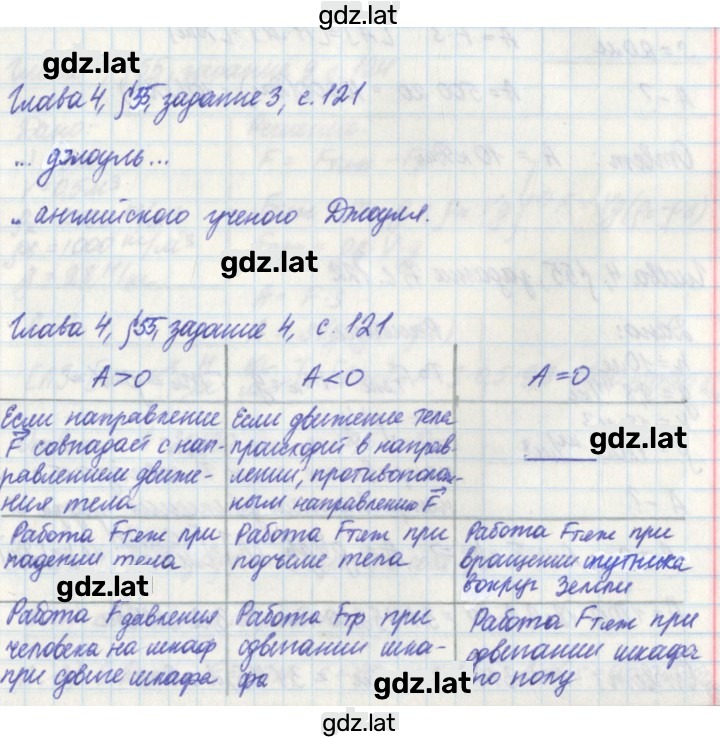 gdz.lat
gdz.lat
Глава 4, §55, задание 3, с. 121
... джоуль ...
... английского ученого Джоуля.
gdz.lat
Глава 4, §55, задание 4, с. 121
A>0 A<0 A=0
Если направление
F совпадает с нап-
равлением движе-
ния тела
Если движение тела
происходит в направ-
лении, противополож-
ным направлению F
gdz.lat
Работа Fтяж при
падении тела
Работа Fтяж при
подъеме тела
Работа Fтяж при
вращении спутника
вокруг Земли
gdz.lat
Работа Fдавления
человека на шкаф
при сдвиге шкафа
Работа Fтр при
сдвигании шка-
фа
Работа Fтяж при
сдвигании шкафа
по полу
gdz.lat
gdz.lat